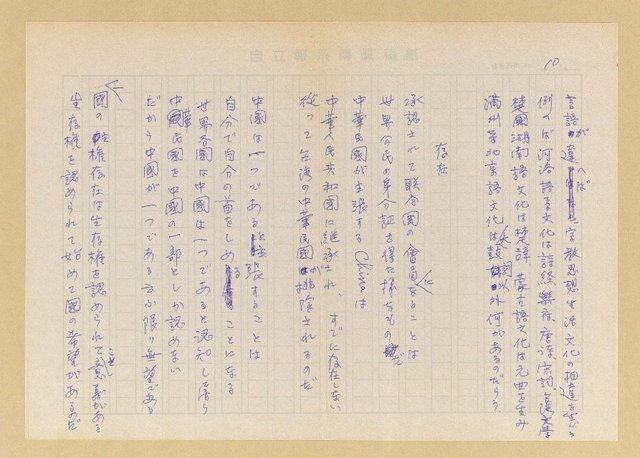 10
言語が違へば宗教思想生活文化の相違を生じる
例へば河洛語系文化は詩經、樂府、唐詩、宋詞、漢文學
楚國湖南語文化は楚辞 蒙古語文化は元曲を生み
満州学北京語文化は鼓詞以外何があるのだらう
存在
承認されて聯合國の會員になることは
世界公民の身分証を得た様なものだ
中華民國が主張するChinaは
中華人民共和國に継承され、すでに存在しない
從つて台湾の中華民國が排除されるのだ
中國は一つである主張することは
自分で自分の首をしめることになる
世界各國は中國は一つであると認知しても
中華民國を中國の一部としか認めない
だから中國が一つである云ふ限り無望である
國の主権存在は生存権を認められてこそ意義がある
生存権を認められて始めて國の希望があるのだ